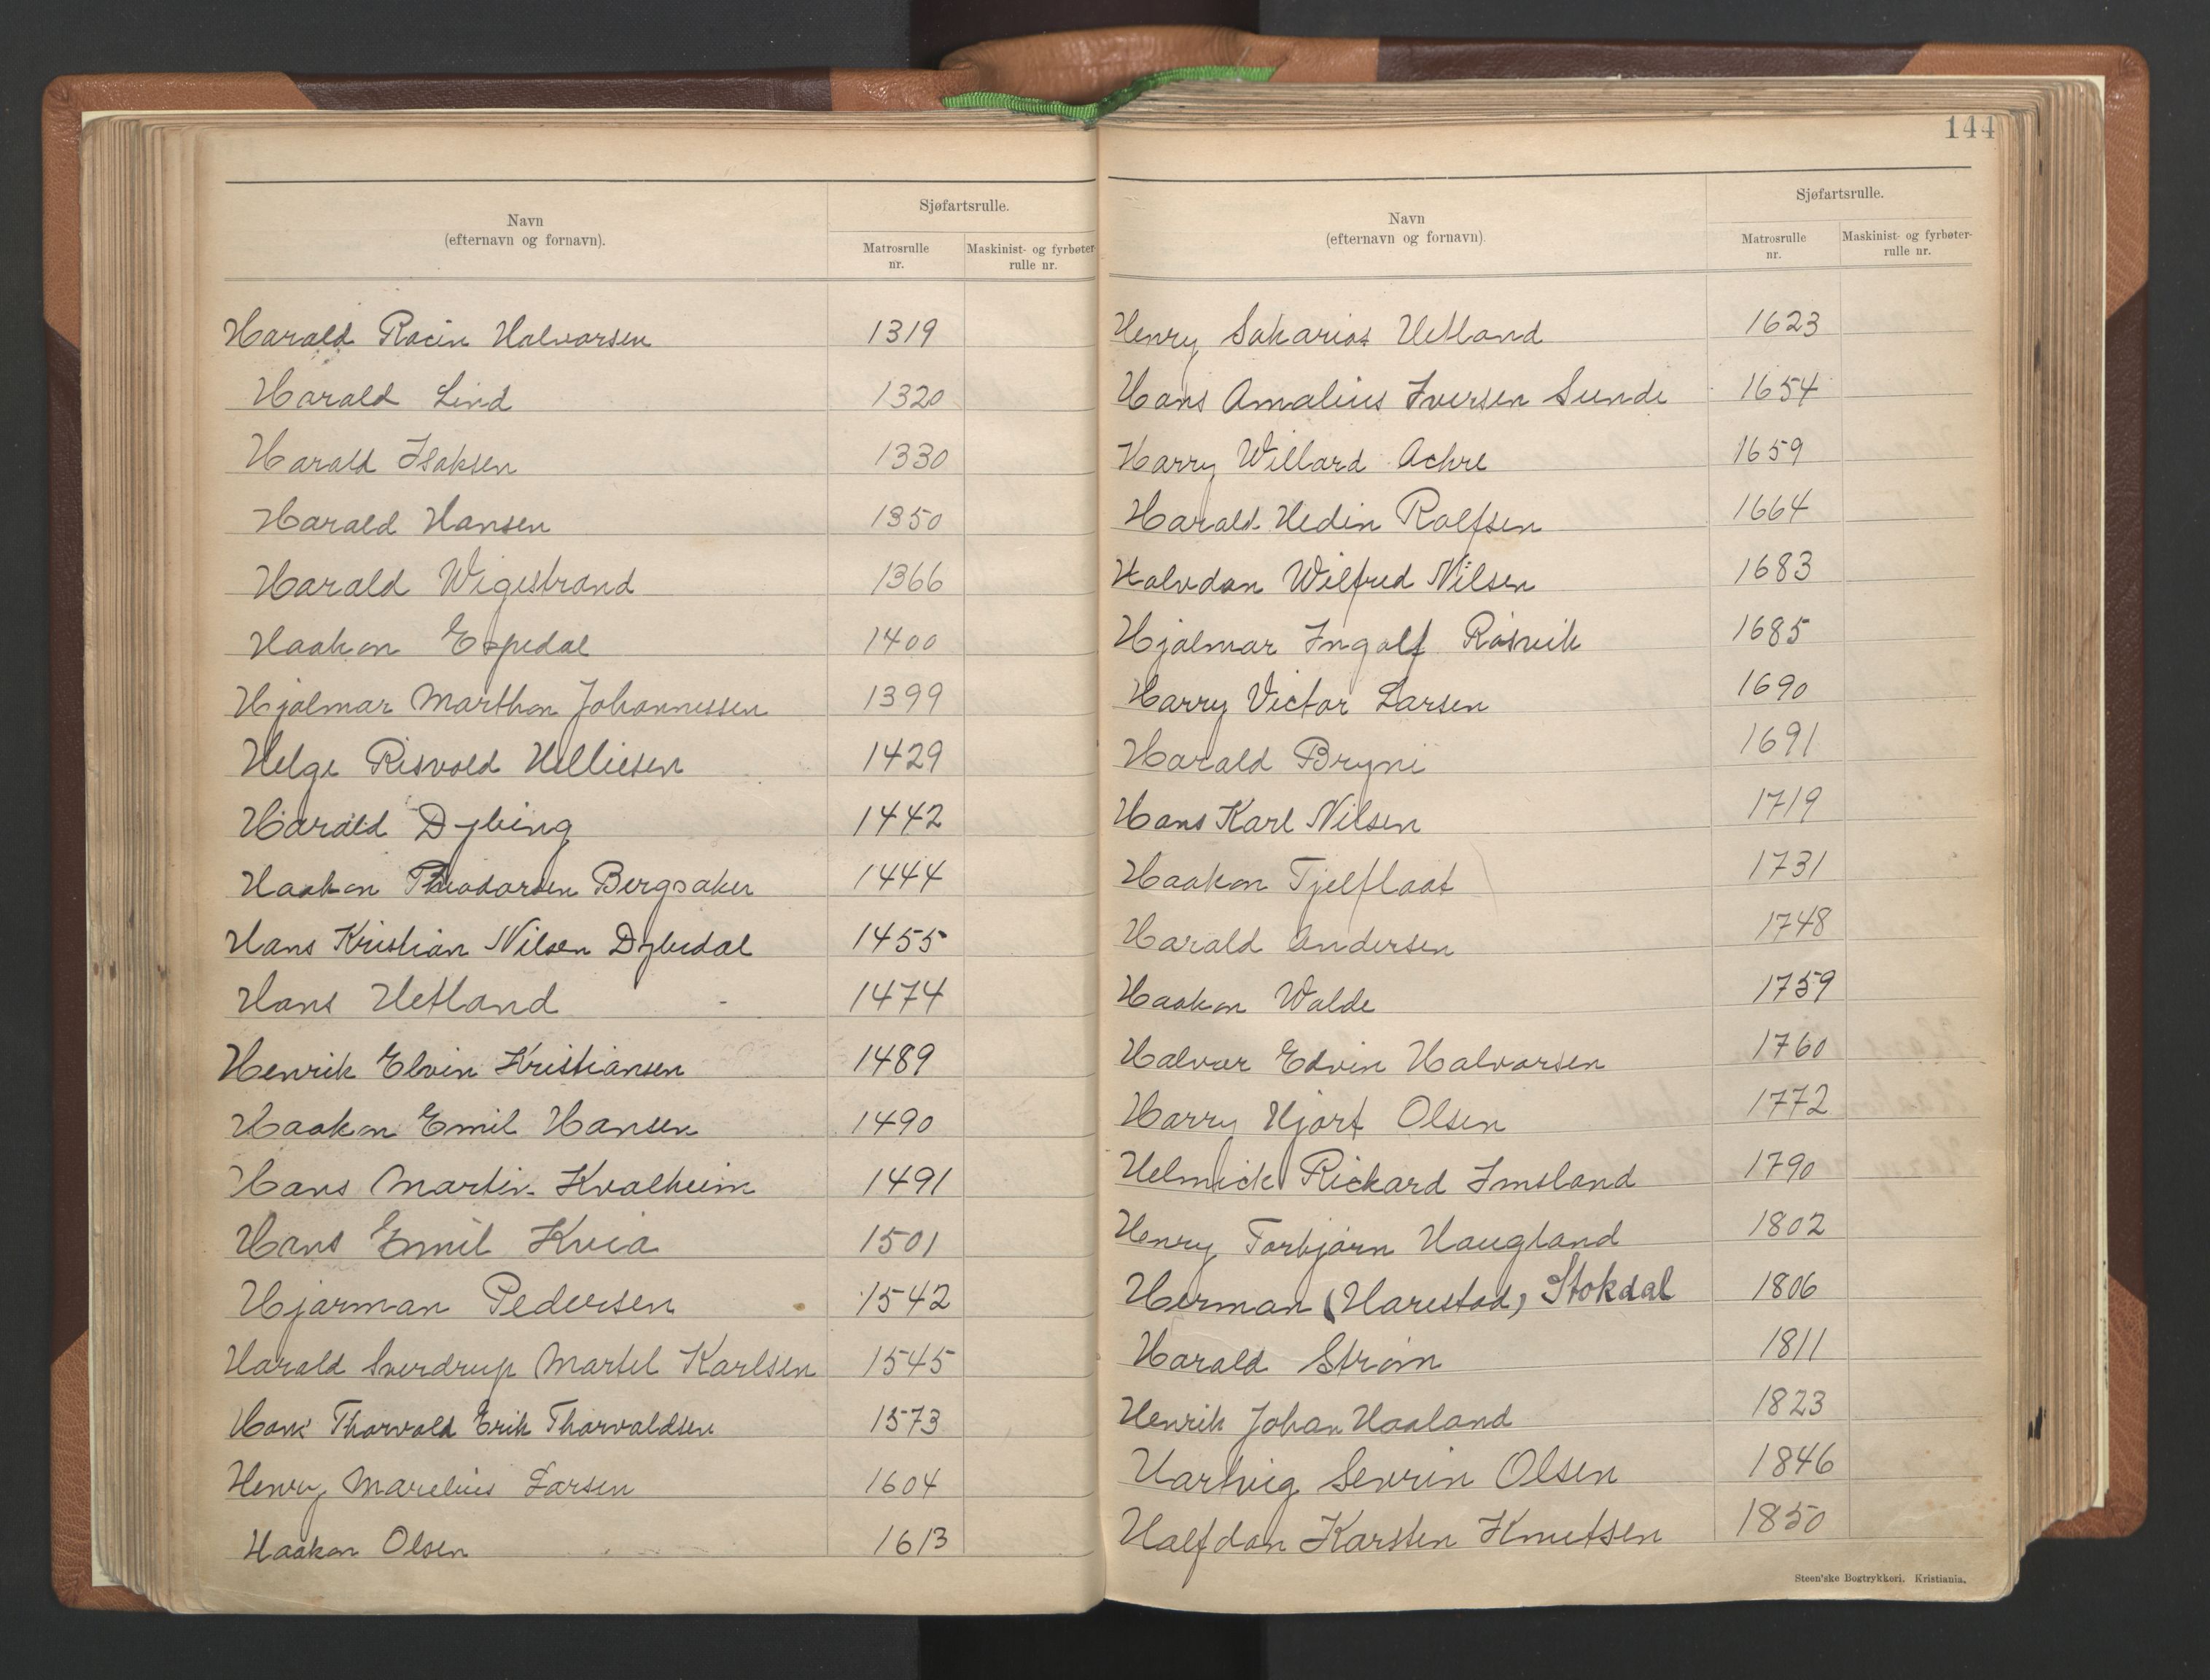 144
Navn
(efternavn og fornavn).
Sjøfartsrulle.
Matrosrulle nr.
Maskinist- og fyrbøter-rulle nr.
Harald Racin Halvorsen 1319
Harald Lind 1320
Harald Isaksen 1330
Harald Hansen 1350
Harald Wigestrand 1366
Haakon Espedal 1400
Hjalmar Marthon Johannessen 1399
Helge Risvold Helliesen 1429
Harald Dybing 1442
Haakon Theodorsen Bergsaker 1444
Hans Kristian Nilsen Dybedal 1455
Hans Hetland 1474
Henrik Elvin Kristiansen 1489
Haakon Emil Hansen 1490
Hans Martin Kvalheim 1491
Hans Emil Kvia 1501
Hjarman Pedersen 1542
Harald Sverdrup Martel Karlsen 1545
Hans Thorvald Erik Thorvaldsen 1573
Henry Marelius Larsen 1604
Haakon Olsen 1613
Navn
(efternavn og fornavn).
Sjøfartsrulle.
Matrosrulle nr.
Maskinist- og fyrbøter-rulle nr.
Henry Sakarias Hetland 1623
Hans Amalius Iversen Sunde 1654
Harry Willard Achre 1659
Harald Hedin Rolfsen 1664
Halvdan Wilfred Nilsen 1683
Hjalmar Ingolf Rosvik 1685
Harry Victor Larsen 1690
Harald Bryne 1691
Hans Karl Nilsen 1719
Haakon Tjelflaat 1731
Harald Andersen 1748
Haakon Walde 1759
Halvor Edvin Halvorsen 1760
Harry Hjort Olsen 1772
Helmick Rickard Imsland 1790
Henry Torbjørn Haugland 1802
Herman (Harestad) Stokdal 1806
Harald Strøm 1811
Henrik Johan Haaland 1823
Hartvig Sevrin Olsen 1846
Halfdan Karsten Knutsen 1850
Steen'ske Bogtrykkeri. Kristiania.